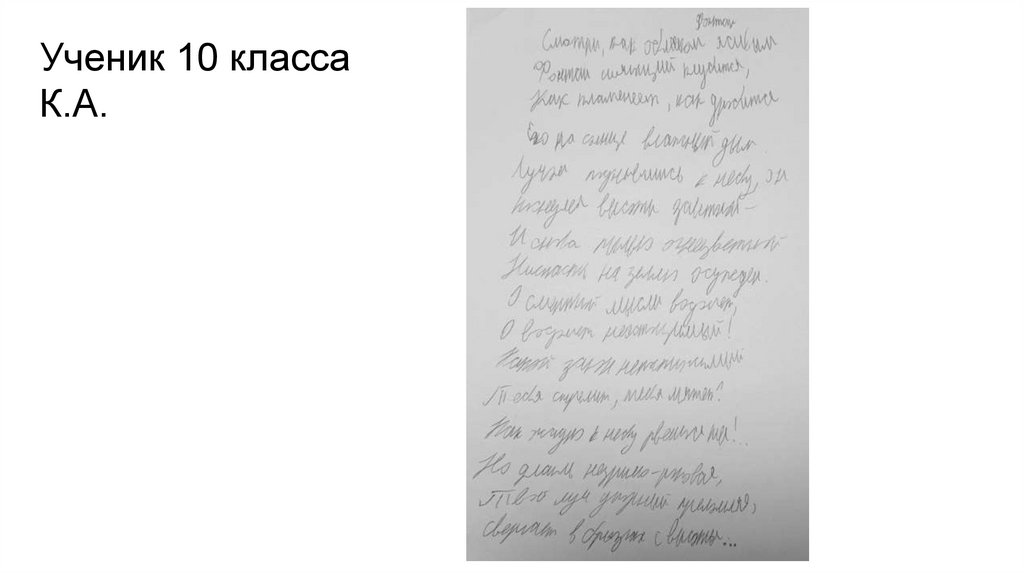 Ученик 10 класса
К.А.
Фонтан
Смотри, как облаком живым
Фонтан сияющий клубится,
Как пламенеет, как дробится
Его на солнце влажный дым.
Лучом поднявшись к небу, он
Коснулся высоты заветной –
И снова пылью огнецветной
Ниспасть на землю осужден.
О смертной мысли водомет,
О водомет неистощимый!
Какой закон непостижимый
Тебя стремит, тебя мятет?
Как жадно к небу рвешься ты!..
Но длань незримо-роковая,
Твой луч упорный преломляя,
Свергает в брызгах с высоты...